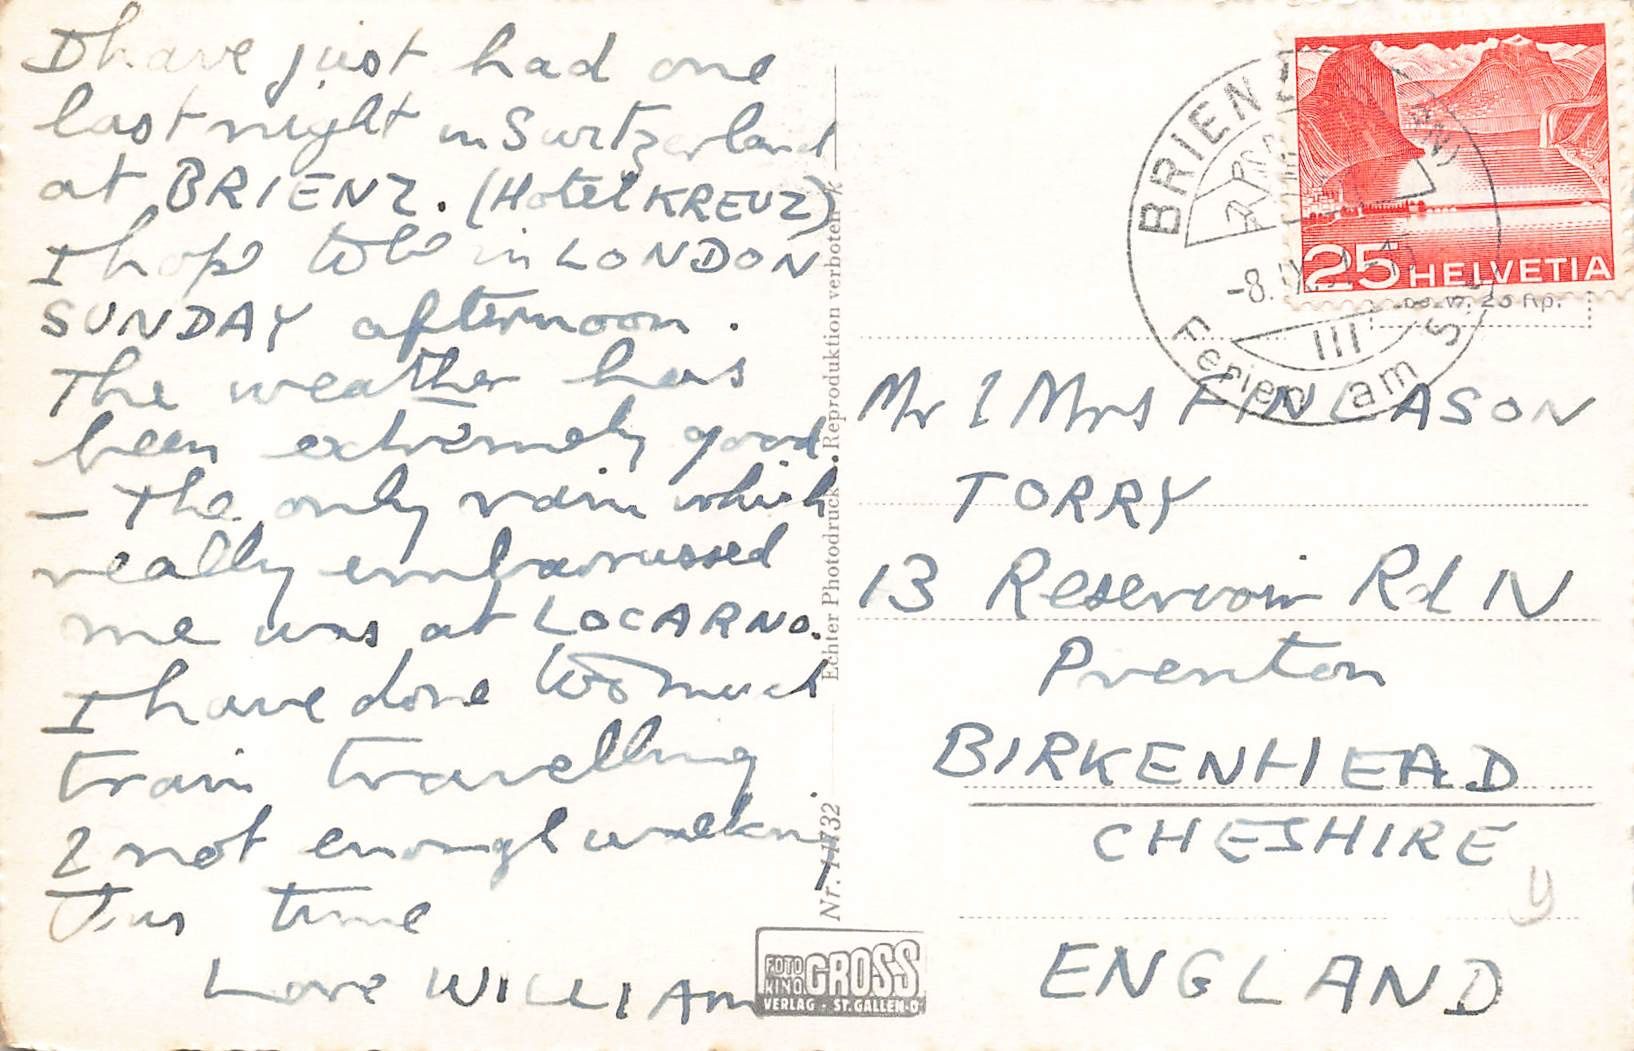 I have just had one
last night in Switzerland
at BRIENZ. (Hotel KREUZ)
I hope to be in LONDON
SUNDAY afternoon.
The weather has
been extremely good.
— The only rain which
really embarrassed
me was at LOCARNO.
I have done too much
train travelling
& not enough walking
this time
Love WILLIAM
Echter Photodruck. Reproduktion verboten
Nr. 11732
FOTO KINO GROSS
VERLAG · ST. GALLEN-O
BRIENZ
-8. IX.
III
Ferien am S
25 HELVETIA
25 Rp.
Mr & Mrs FINLASON
TORRY
13 Reservoir Rd N
Prenton
BIRKENHEAD
CHESHIRE
y
ENGLAND